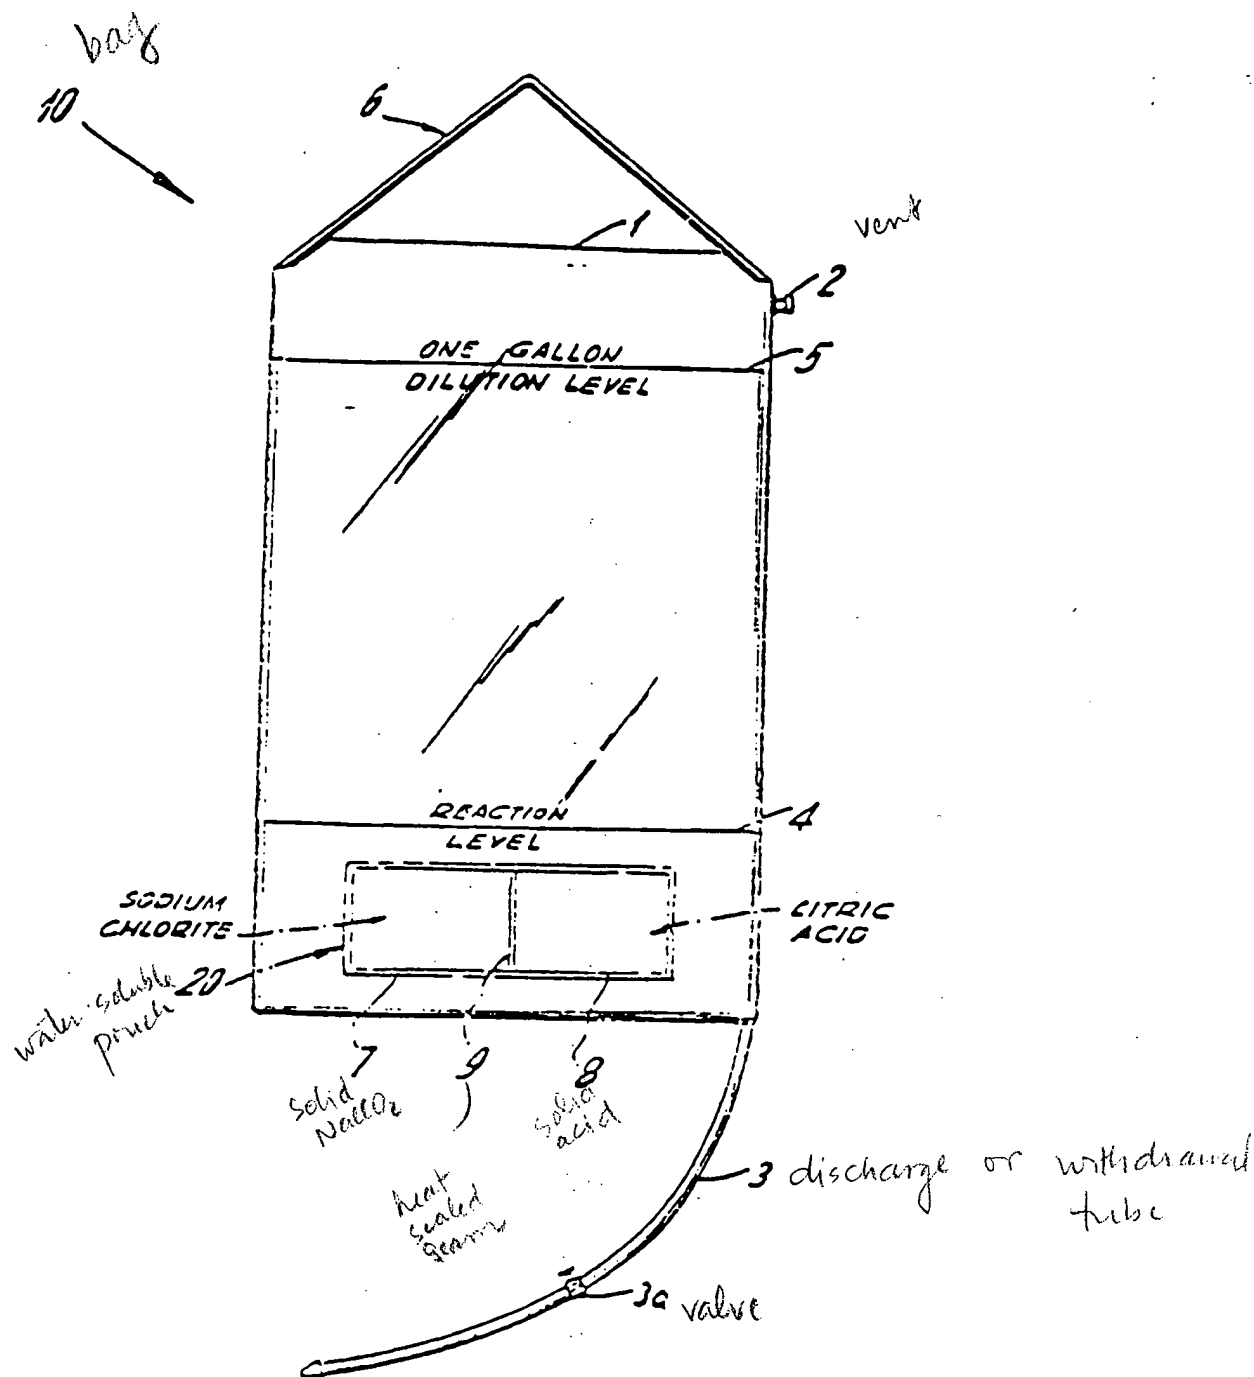 bag
10
6
1
vent
2
ONE GALLON
5
DILUTION LEVEL
REACTION
4
LEVEL
SODIUM
CHLORITE
CITRIC
ACID
20
water-soluble
pouch
7
9
8
solid
NaClO2
solid
acid
heat
sealed
seam
3 discharge or withdrawal
tube
3a valve